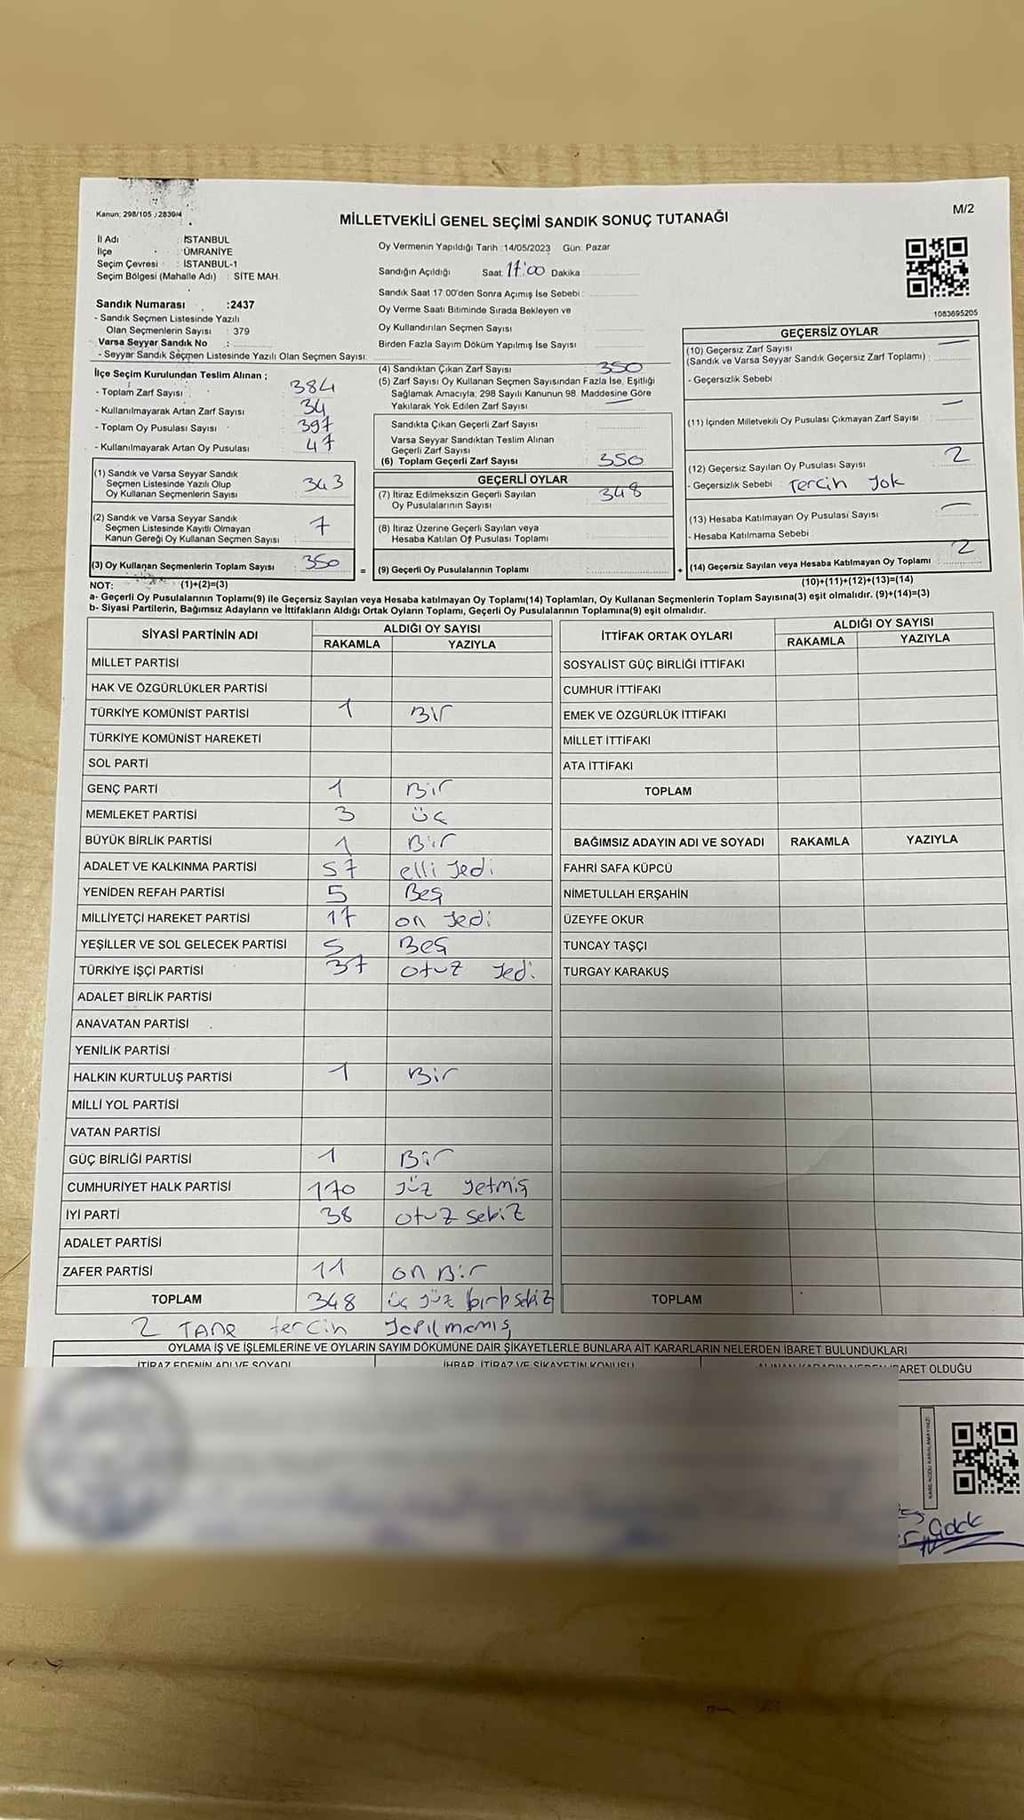 Kanun; 298/105 ; 2839/4
MİLLETVEKİLİ GENEL SEÇİMİ SANDIK SONUÇ TUTANAĞI
M/2
İl Adı : İSTANBUL
İlçe : ÜMRANİYE
Seçim Çevresi : İSTANBUL-1
Seçim Bölgesi (Mahalle Adı) : SİTE MAH.
Sandık Numarası :2437
- Sandık Seçmen Listesinde Yazılı
Olan Seçmenlerin Sayısı : 379
Varsa Seyyar Sandık No :
- Seyyar Sandık Seçmen Listesinde Yazılı Olan Seçmen Sayısı:
İlçe Seçim Kurulundan Teslim Alınan ;
- Toplam Zarf Sayısı 384
- Kullanılmayarak Artan Zarf Sayısı 34
- Toplam Oy Pusulası Sayısı 397
- Kullanılmayarak Artan Oy Pusulası 47
(1) Sandık ve Varsa Seyyar Sandık
Seçmen Listesinde Yazılı Olup
Oy Kullanan Seçmenlerin Sayısı 343
(2) Sandık ve Varsa Seyyar Sandık
Seçmen Listesinde Kayıtlı Olmayan
Kanun Gereği Oy Kullanan Seçmen Sayısı 7
(3) Oy Kullanan Seçmenlerin Toplam Sayısı 350
Oy Vermenin Yapıldığı Tarih :14/05/2023 Gün: Pazar
Sandığın Açıldığı Saat: 17:00 Dakika
Sandık Saat 17:00'den Sonra Açılmış İse Sebebi :
Oy Verme Saati Bitiminde Sırada Bekleyen ve
Oy Kullandırılan Seçmen Sayısı
Birden Fazla Sayım Döküm Yapılmış İse Sayısı
(4) Sandıktan Çıkan Zarf Sayısı 350
(5) Zarf Sayısı Oy Kullanan Seçmen Sayısından Fazla İse, Eşitliği
Sağlamak Amacıyla; 298 Sayılı Kanunun 98. Maddesine Göre
Yakılarak Yok Edilen Zarf Sayısı —
Sandıkta Çıkan Geçerli Zarf Sayısı
Varsa Seyyar Sandıktan Teslim Alınan
Geçerli Zarf Sayısı
(6) Toplam Geçerli Zarf Sayısı 350
GEÇERLİ OYLAR
(7) İtiraz Edilmeksizin Geçerli Sayılan
Oy Pusulalarının Sayısı 348
(8) İtiraz Üzerine Geçerli Sayılan veya
Hesaba Katılan Oy Pusulası Toplamı
= (9) Geçerli Oy Pusulalarının Toplamı +
1083695205
GEÇERSİZ OYLAR
(10) Geçersiz Zarf Sayısı —
(Sandık ve Varsa Seyyar Sandık Geçersiz Zarf Toplamı)
- Geçersizlik Sebebi
(11) İçinden Milletvekili Oy Pusulası Çıkmayan Zarf Sayısı —
(12) Geçersiz Sayılan Oy Pusulası Sayısı 2
- Geçersizlik Sebebi : Tercih Yok
(13) Hesaba Katılmayan Oy Pusulası Sayısı —
- Hesaba Katılmama Sebebi
(14) Geçersiz Sayılan veya Hesaba Katılmayan Oy Toplamı 2
NOT: (1)+(2)=(3) (10)+(11)+(12)+(13)=(14)
a- Geçerli Oy Pusulalarının Toplamı(9) ile Geçersiz Sayılan veya Hesaba katılmayan Oy Toplamı(14) Toplamları, Oy Kullanan Seçmenlerin Toplam Sayısına(3) eşit olmalıdır. (9)+(14)=(3)
b- Siyasi Partilerin, Bağımsız Adayların ve İttifakların Aldığı Ortak Oyların Toplamı, Geçerli Oy Pusulalarının Toplamına(9) eşit olmalıdır.
SİYASİ PARTİNİN ADI ALDIĞI OY SAYISI
RAKAMLA YAZIYLA
MİLLET PARTİSİ
HAK VE ÖZGÜRLÜKLER PARTİSİ
TÜRKİYE KOMÜNİST PARTİSİ 1 Bir
TÜRKİYE KOMÜNİST HAREKETİ
SOL PARTİ
GENÇ PARTİ 1 Bir
MEMLEKET PARTİSİ 3 üç
BÜYÜK BİRLİK PARTİSİ 1 Bir
ADALET VE KALKINMA PARTİSİ 57 elli yedi
YENİDEN REFAH PARTİSİ 5 Beş
MİLLİYETÇİ HAREKET PARTİSİ 17 on yedi
YEŞİLLER VE SOL GELECEK PARTİSİ 5 Beş
TÜRKİYE İŞÇİ PARTİSİ 37 otuz yedi
ADALET BİRLİK PARTİSİ
ANAVATAN PARTİSİ
YENİLİK PARTİSİ
HALKIN KURTULUŞ PARTİSİ 1 Bir
MİLLİ YOL PARTİSİ
VATAN PARTİSİ
GÜÇ BİRLİĞİ PARTİSİ 1 Bir
CUMHURİYET HALK PARTİSİ 170 yüz yetmiş
İYİ PARTİ 38 otuz sekiz
ADALET PARTİSİ
ZAFER PARTİSİ 11 on Bir
TOPLAM 348 üç yüz kırk sekiz
İTTİFAK ORTAK OYLARI ALDIĞI OY SAYISI
RAKAMLA YAZIYLA
SOSYALİST GÜÇ BİRLİĞİ İTTİFAKI
CUMHUR İTTİFAKI
EMEK VE ÖZGÜRLÜK İTTİFAKI
MİLLET İTTİFAKI
ATA İTTİFAKI
TOPLAM
BAĞIMSIZ ADAYIN ADI VE SOYADI RAKAMLA YAZIYLA
FAHRİ SAFA KÜPCÜ
NİMETULLAH ERŞAHİN
ÜZEYFE OKUR
TUNCAY TAŞÇI
TURGAY KARAKUŞ
TOPLAM
2 TANE tercih Yapılmamış
OYLAMA İŞ VE İŞLEMLERİNE VE OYLARIN SAYIM DÖKÜMÜNE DAİR ŞİKAYETLERLE BUNLARA AİT KARARLARIN NELERDEN İBARET BULUNDUKLARI
İTİRAZ EDENİN ADI VE SOYADI İHBAR, İTİRAZ VE ŞİKAYETİN KONUSU ALINAN KARARIN NEDEN İBARET OLDUĞU